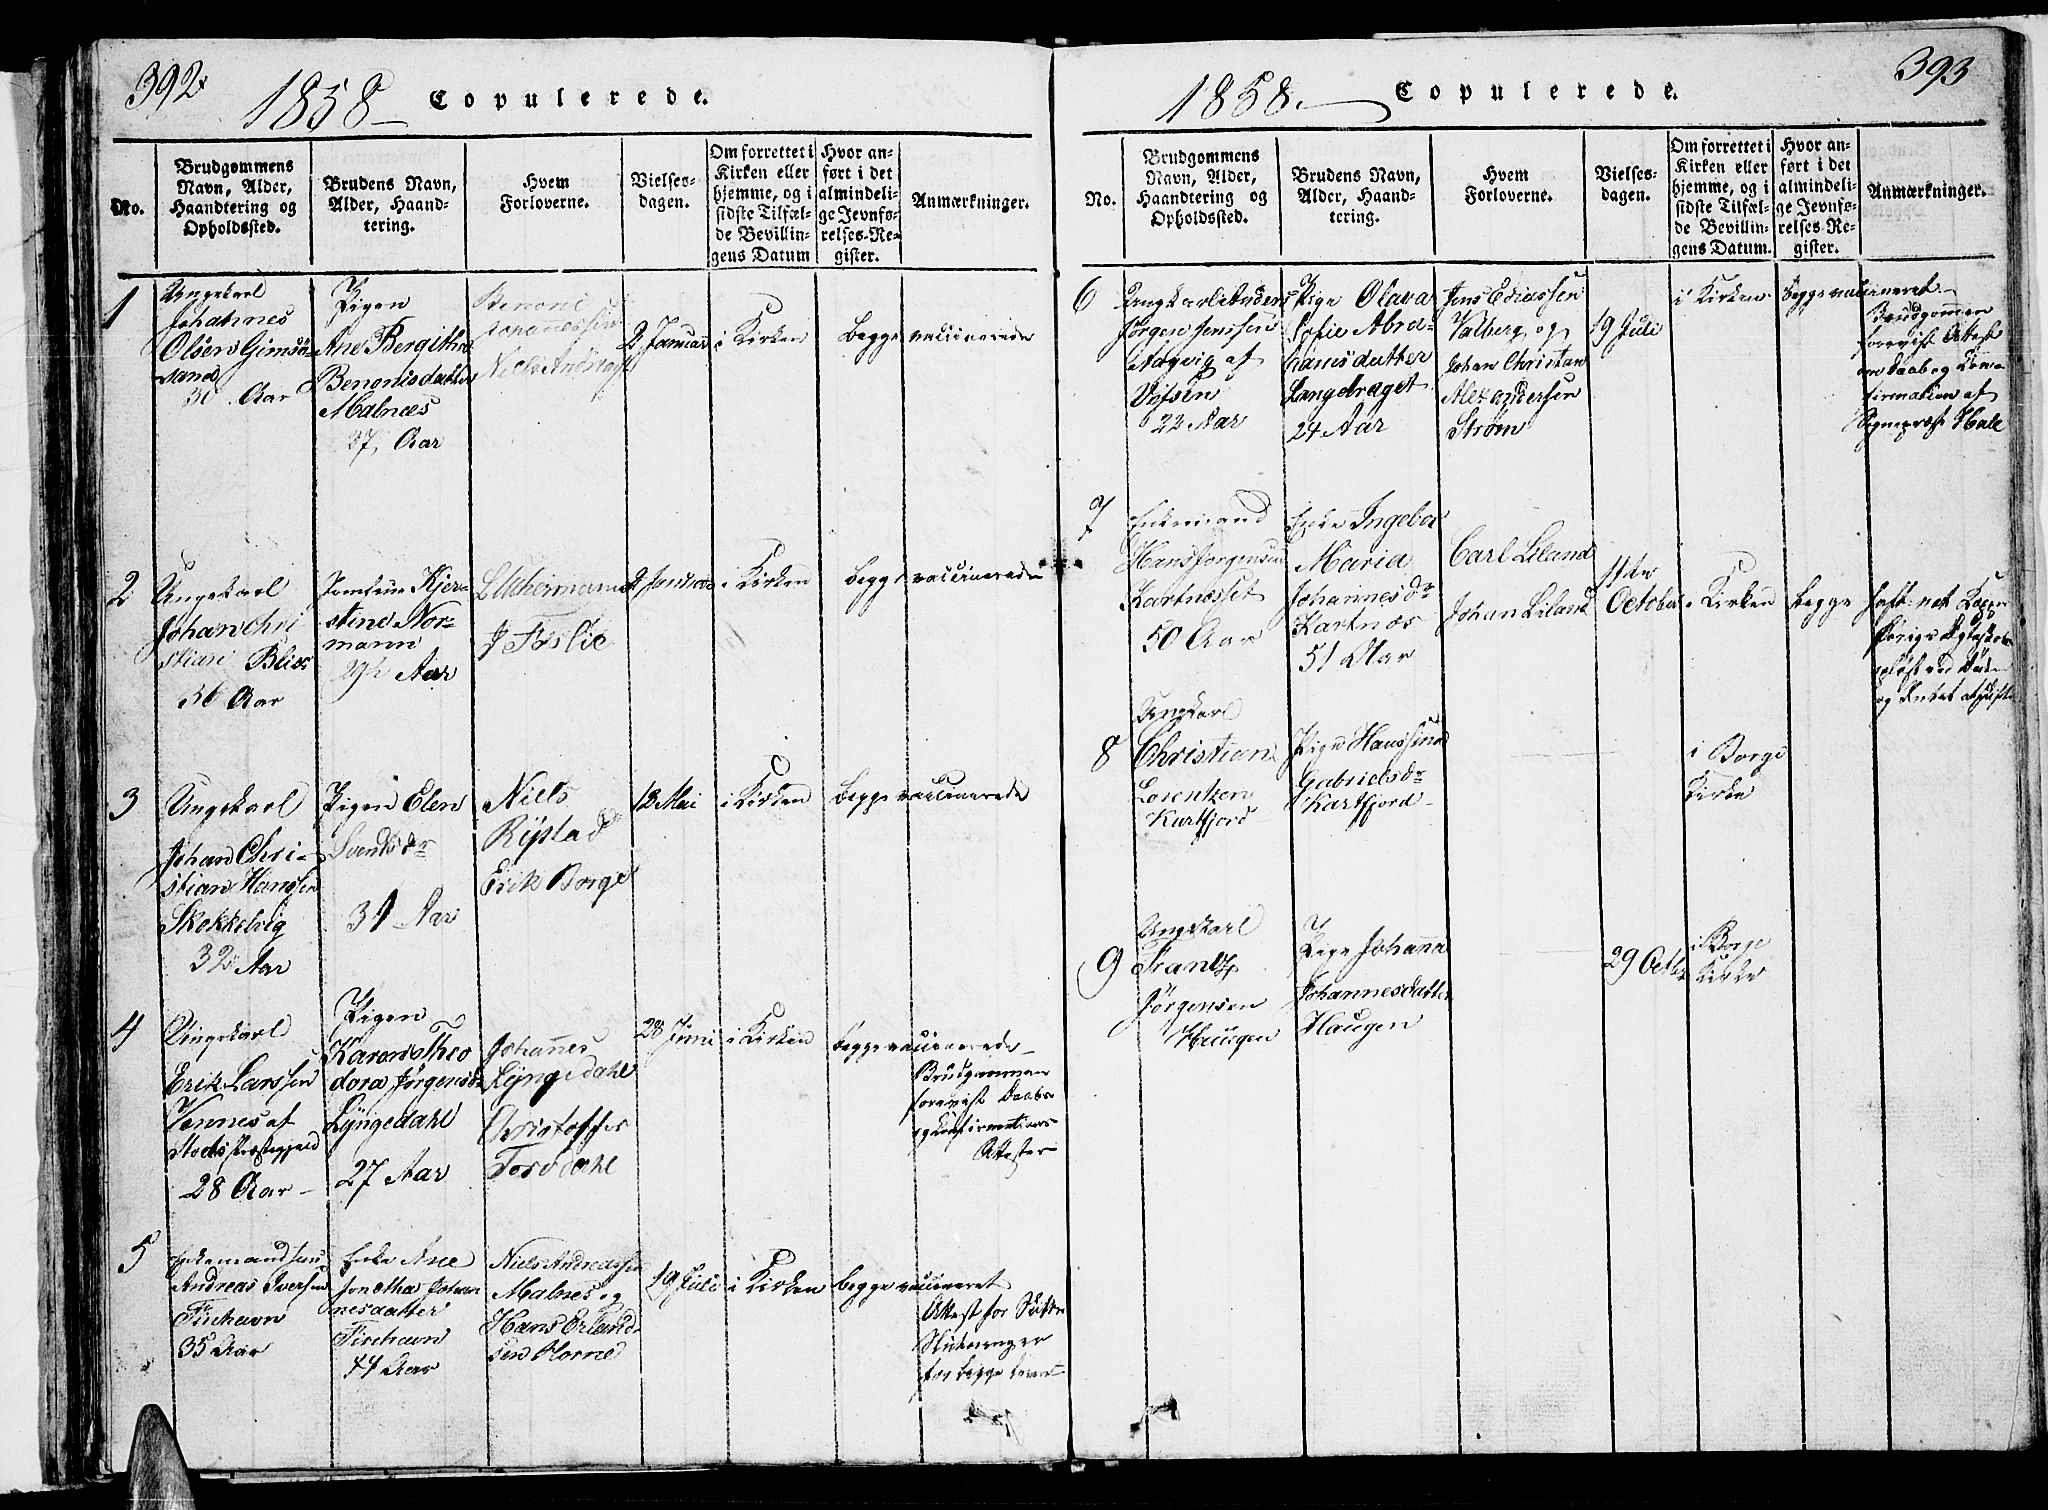 392.
1858 Copulerede.
No.
Brudgommens
Navn, Alder,
Haandtering og
Opholdssted.
Brudens Navn,
Alder, Haand-
tering.
Hvem
Forloverne.
Vielses-
dagen.
Om forrettet i
Kirken eller
hjemme, og i
sidste Tilfæl-
de Bevillin-
gens Datum
Hvor an-
ført i det
almindeli-
ge Jevnfø-
relses-Re-
gister.
Anmærkninger.
1
Ungekarl
Johannes
Olsen Gimsø-
sand
30 Aar
Pigen
Ane Bergitha
Benonisdatter
Malnæs
37 Aar
Benoni
Johannessen
Niels
2 Januar
i Kirken
begge vaccinerede
2
Ungekarl
Johan Chri
stian Blix
36 Aar
Jomfrue Kjer-
stine Nor-
mann
29½ Aar
J Føslie
2 Januar
i Kirken
begge vaccinerede
3
Ungekarl
Johan Chri-
stian Hanssen
Skokkelvig
32 Aar
Pigen Elen
Svendsdr
31 Aar
Niels
Rystad
Erik Borge
18 Mai
i Kirken
begge vaccinerede
4
Ungekarl
Erik Larssen
Vennes af
præstegjeld
28 Aar
Pigen
Karen Theo
dora Jørgensdr
Lyngedahl
27 Aar
Johannes
Lyngedahl
Christoffer
Torsdahl
28 Juni
i Kirken
begge vaccinerede
Brudgommen
forevist Daabs
og Confirmations
Attester
5
Enkemand
Andreas Iversen
Finhavn
35 Aar
Enke Ane
Jonetha Johan
nesdatter
Finhavn
44 Aar
Niels Andreassen
Malnes og
Hans Erland
sen Horne
19 Juli
i Kirken
begge vaccineret
Attest for Skifte
for begge
1858. Copulerede.
393
No.
Brudgommens
Navn, Alder,
Haandtering og
Opholdssted.
Brudens Navn,
Alder, Haand-
tering.
Hvem
Forloverne.
Vielses-
dagen.
Om forrettet i
Kirken eller
hjemme, og i
sidste Tilfæl-
de Bevillin-
gens Datum.
Hvor an-
ført i det
almindeli-
ge Jevnfø-
relses-Re-
gister.
Anmærkninger.
6
Ungkarl Anders
Jørgen Jenssen
af
Vefsen
22 Aar
Pige Olava
Sofie Abra-
hamsdatter
Langdraget
24 Aar
Jens Eliassen
Valberg og
Johan Christian
Alexandersen
Strøm
19 Juli
i Kirken
begge vaccineret
Brudgommen
forevist Attest
om Daab og Con-
firmation af
Sognepræst
7
Enkemand
Hans Jørgensen
Kartnæsset
50 Aar
Enke Ingebor
Maria
Johannesdr
Kartnæs
51 Aar
Carl Liland
Johan Liland
11te
October
i Kirken
begge
og
8
Ungkarl
Christian
Lorentzen
Kartfjord
Pige Hanssine
Gabrielsdr
Kartfjord
i Borge
Kirke
9
Ungkarl
Frantz
Jørgensen
Haugen
Pige Johanna
Johannesdatter
Haugen
29 Octbr
i Borge
Kirke